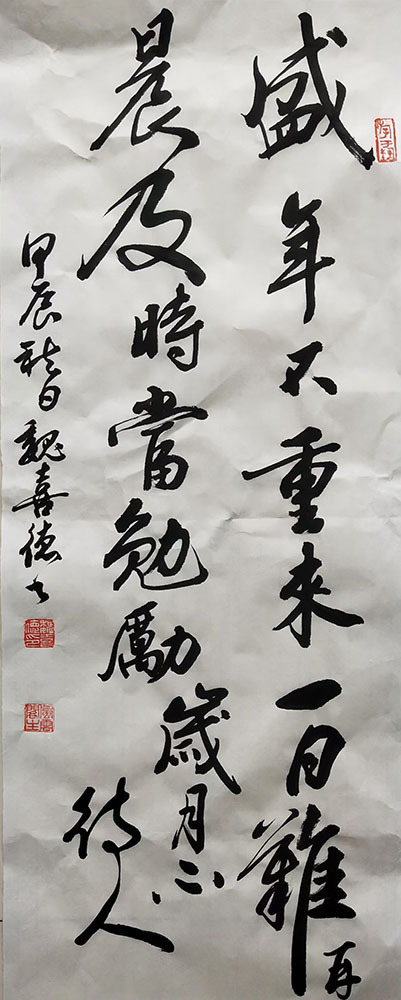 盛年不重來一日難再
晨及時當勉勵歲月不
待人
甲辰秋日魏喜德书